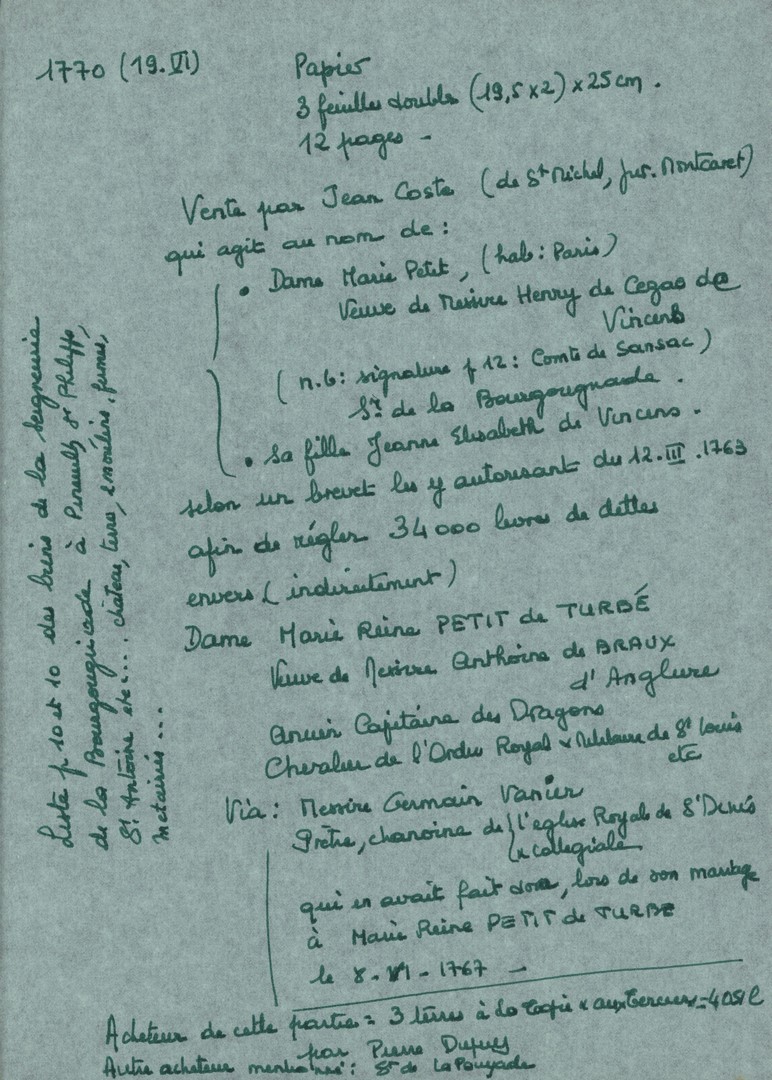 1770 (19.VI)
Papier
3 feuilles doubles (19,5 x 2) x 25 cm.
12 pages -
Vente par Jean Coste (de St Michel, jur. Montcaret)
qui agit au nom de :
• Dame Marie Petit, (hab: Paris)
Veuve de Messire Henry de Cezac de
Vincens
(n.b: signature p 12: Comte de Sansac)
Sr de la Bourgougnade.
• Sa fille Jeanne Elisabeth de Vincens.
selon un brevet les y autorisant du 12.III.1763
afin de régler 34000 livres de dettes
envers (indirectement)
Dame Marie Reine PETIT de TURBÉ
Veuve de Messire Anthoine de BRAUX
d'Anglure
Ancien Capitaine des Dragons
Chevalier de l'Ordre Royal & Militaire de St Louis
etc
Via : Messire Germain Vanier
Prêtre, chanoine de l'eglise Royale de St Denis
& collegiale
qui en avait fait don, lors de son mariage
à Marie Reine PETIT de TURBE
le 8-VI-1767 -
Acheteur de cette partie = 3 terres à la & aux = 405 l
par Pierre Dupuy
Autre acheteur mentionné : Sr de La Pouyade
Liste p 10 et 10 des biens de la Seigneurie
de la Bourgougnade à Pineuilh St Philippe,
St Antoine etc... château, terres, 2 moulins, fermes,
metairies...